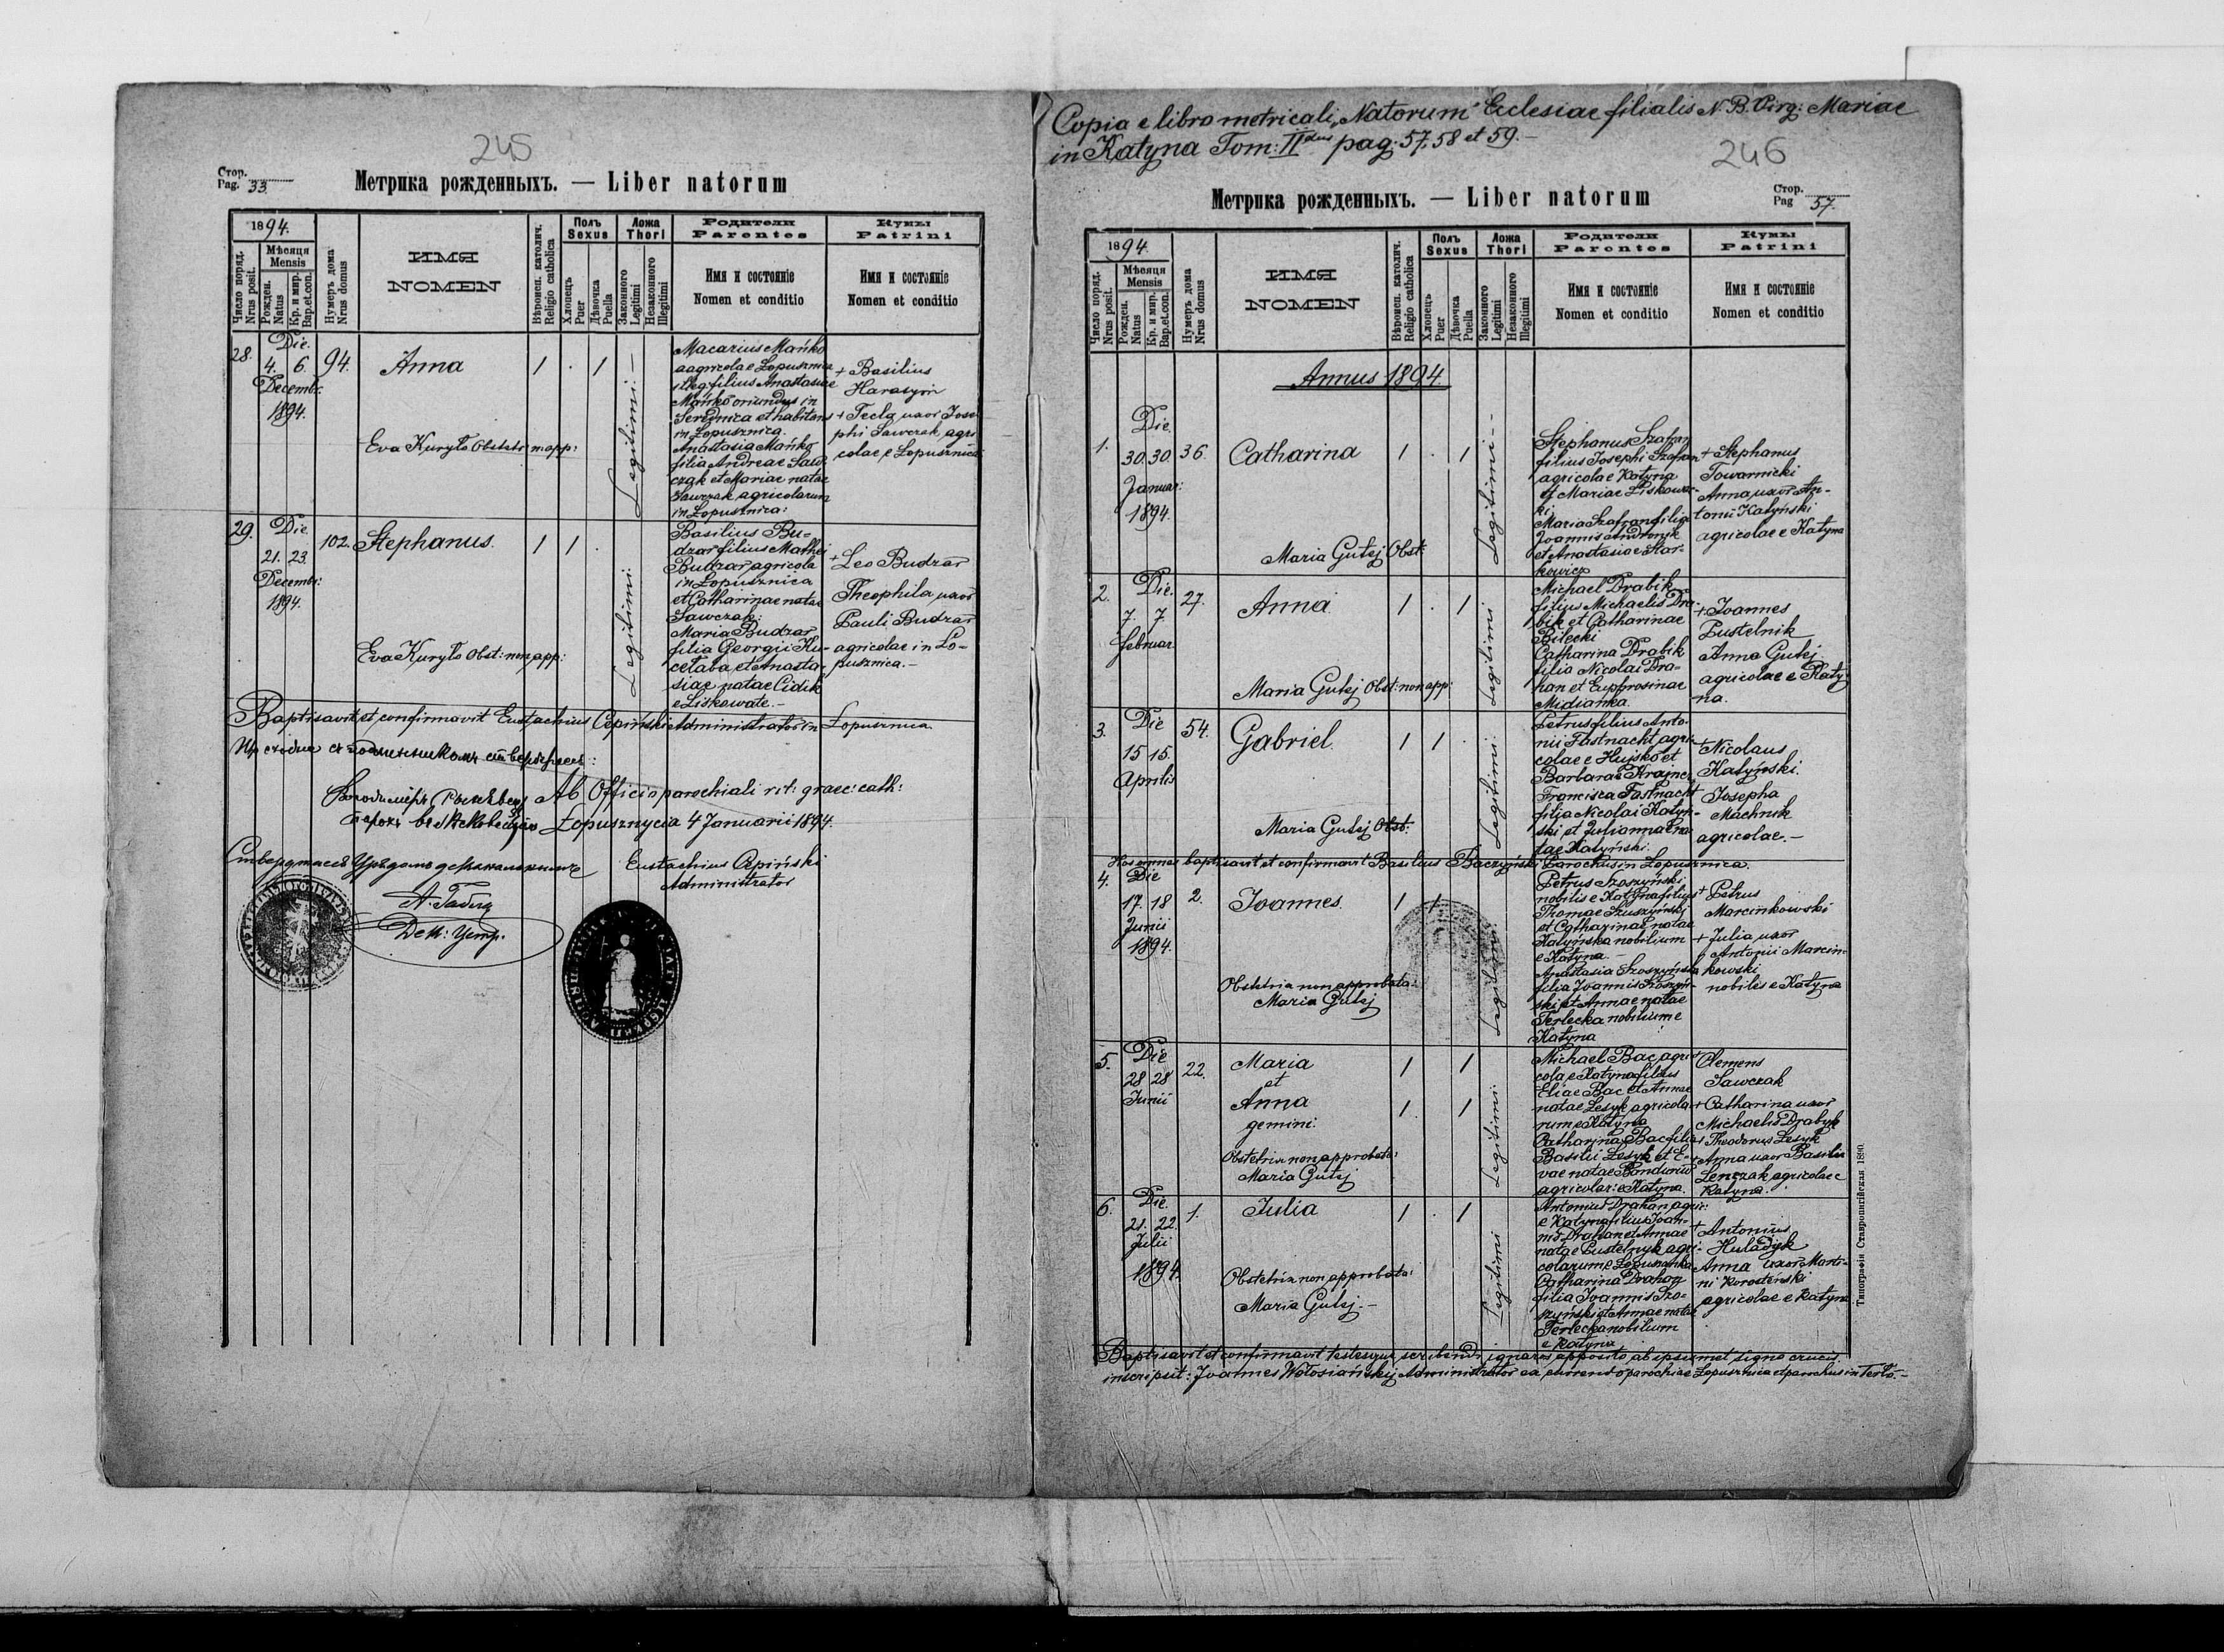 245
Стор.
Pag. 33.
Метрика рожденныхъ. — Liber natorum
1894.
Мѣсяця
Mensis
Число поряд.
Nrus posit.
Рожден.
Natus
Кр. и мир.
Bap.et.con.
Нумеръ дома
Nrus domus
ИМЯ
NOMEN
Вѣроисп. католич.
Religio catholica
Полъ
Sexus
Хлопецъ
Puer
Дѣвочка
Puella
Ложа
Thori
Законного
Legitimi
Незаконного
Illegitimi
Родители
Parentes
Имя и состояніе
Nomen et conditio
Кумы
Patrini
Имя и состояніе
Nomen et conditio
28.
Die
4. 6.
Decembr.
1894.
94.
Anna
1 . 1
Legitimi.—
Eva Kuryło Obstetr: n: app:
Macarius Mańko
agricola e Łopusznica
illeg. filius Anastasiae
Mańko oriundus in
Serednica et habitans
in Łopusznica.
Anastasia Mańko
filia Andreae Saw-
czak et Mariae natae
Sawczak agricolarum
in Łopusznica:
+ Basilius
Harasym
+ Tecla uxor Jose-
phi Sawczak, agri-
colae e Łopusznica
29.
Die
21. 23.
Decembr:
1894.
102.
Stephanus.
1 1 .
Legitimi.
Eva Kuryło Obst: non app:
Basilius Bu-
dzar filius Mathei
Budzar agricola
in Łopusznica
et Catharinae natae
Sawczak:
Maria Budzar
filia Georgii Ku-
cełaba et Anasta-
siae natae Cidik
e Liskowate.—
+ Leo Budzar
Theophila uxor
Pauli Budzar
agricolae in Ło-
pusznica.—
Baptisavit et confirmavit Eustachius Cepiński Administrator in Łopusznica
Ab Officio parochiali rit: graec: cath:
Łopusznycia 4 Januarii 1894.
Eustachius Cepiński
Administrator
Copia e libro metricali „Natorum" Ecclesiae filialis N. B. Virg: Mariae
in Katyna Tom: IIdus pag: 57, 58 et 59.—
246
Метрика рожденныхъ. — Liber natorum
Стор.
Pag 57.
1894.
Мѣсяця
Mensis
Число поряд.
Nrus posit.
Рожден.
Natus
Кр. и мир.
Bap.et.con.
Нумеръ дома
Nrus domus
ИМЯ
NOMEN
Вѣроисп. католич.
Religio catholica
Полъ
Sexus
Хлопецъ
Puer
Дѣвочка
Puella
Ложа
Thori
Законного
Legitimi
Незаконного
Illegitimi
Родители
Parentes
Имя и состояніе
Nomen et conditio
Кумы
Patrini
Имя и состояніе
Nomen et conditio
Annus 1894.
1.
Die
30. 30.
Januar:
1894.
36.
Catharina
1 . 1
Legitimi—
Maria Gutej Obst:
Stephanus Szafran
filius Josephi Szafran
agricolae Katyna
et Mariae Liskowac-
ki.
Maria Szafran filia
Joannis Andronik
et Anastasiae Star-
kowicz
+ Stephanus
Towarnicki
Anna uxor An-
tonii Katyński
agricolae e Katyna
2.
Die
7. 7.
Februar.
27.
Anna
1 . 1
Legitimi
Maria Gutej Obst: non app:
Michael Drabik
filius Michaelis Dra-
bik et Catharinae
Bilecki
Catharina Drabik
filia Nicolai Dra-
han et Euphrosinae
Midianka.
+ Joannes
Pustelnik
Anna Gutej
agricolae e Katy-
na.
3.
Die
15 15.
Aprilis
54.
Gabriel.
1 1 .
Legitimi.
Maria Gutej Obst:
Petrus filius Anto-
nii Fastnacht agri-
colae e Hujsko et
Barbarae Krajnc
Francisca Fastnacht
filia Nicolai Katyń-
ski et Juliannae na-
tae Katyński.
+ Nicolaus
Katyński.
+ Josepha
Machnik
agricolae.—
Hos omnes baptisavit et confirmavit Basilius Baczyński Parochus in Łopusznica.
4.
Die
17. 18
Junii
1894.
2.
Joannes.
1 1
Legitimi
Obstetrix non approbata:
Maria Gutej
Petrus Szoszyński
nobilis e Katyna filius
Thomae Szuszyński
et Catharinae natae
Katyńska nobilium
e Katyna.—
Anastasia Szoszyńska
filia Joannis Szoszyń-
ski et Annae natae
Terlecka nobilium e
Katyna
+ Petrus
Marcinkowski
+ Julia uxor
Antonii Marcin-
kowski
nobiles e Katyna
5.
Die
28 28
Junii
22.
Maria
et
Anna
gemini.
1 1
1. 1
Legitimi.
Obstetrix non approbata:
Maria Gutej
Michael Bac agri-
cola e Katyna filius
Eliae Bac et Annae
natae Lesyk agricola-
rum e Katyna
Catharina Bac filia
Basilii Lesyk et E-
vae natae
agricolar: e Katyna.
Clemens
Sawczak
+ Catharina uxor
Michaelis Drabyk
+ Theodorus Lesyk
+ Anna uxor Basilii
Lenczak agricolae e
Katyna.
6.
Die
21. 22.
Julii
1894.
1.
Julia
1 . 1
Legitimi
Obstetrix non approbata:
Maria Gutej.—
Antonius Drahan agric:
e Katyna filius Joan-
nis Drahan et Annae
natae Pustelnyk agri-
colarum e Łopuszanka
Catharina Drahan
filia Joannis Szo-
szyński et Annae natae
Terlecka nobilium
e Katyna
+ Antonius
Huladyk
Anna uxor Marti-
ni Korosteński
agricolae e Katyna
Baptisavit et confirmavit testesque scribendi ignaros apposito ab ipsismet signo crucis
inscripsit: Joannes Wołosiańskyj Administrator ex currendo parochiae Łopusznica et parochus in Terło.—
Типографія Ставропигійская 1890.